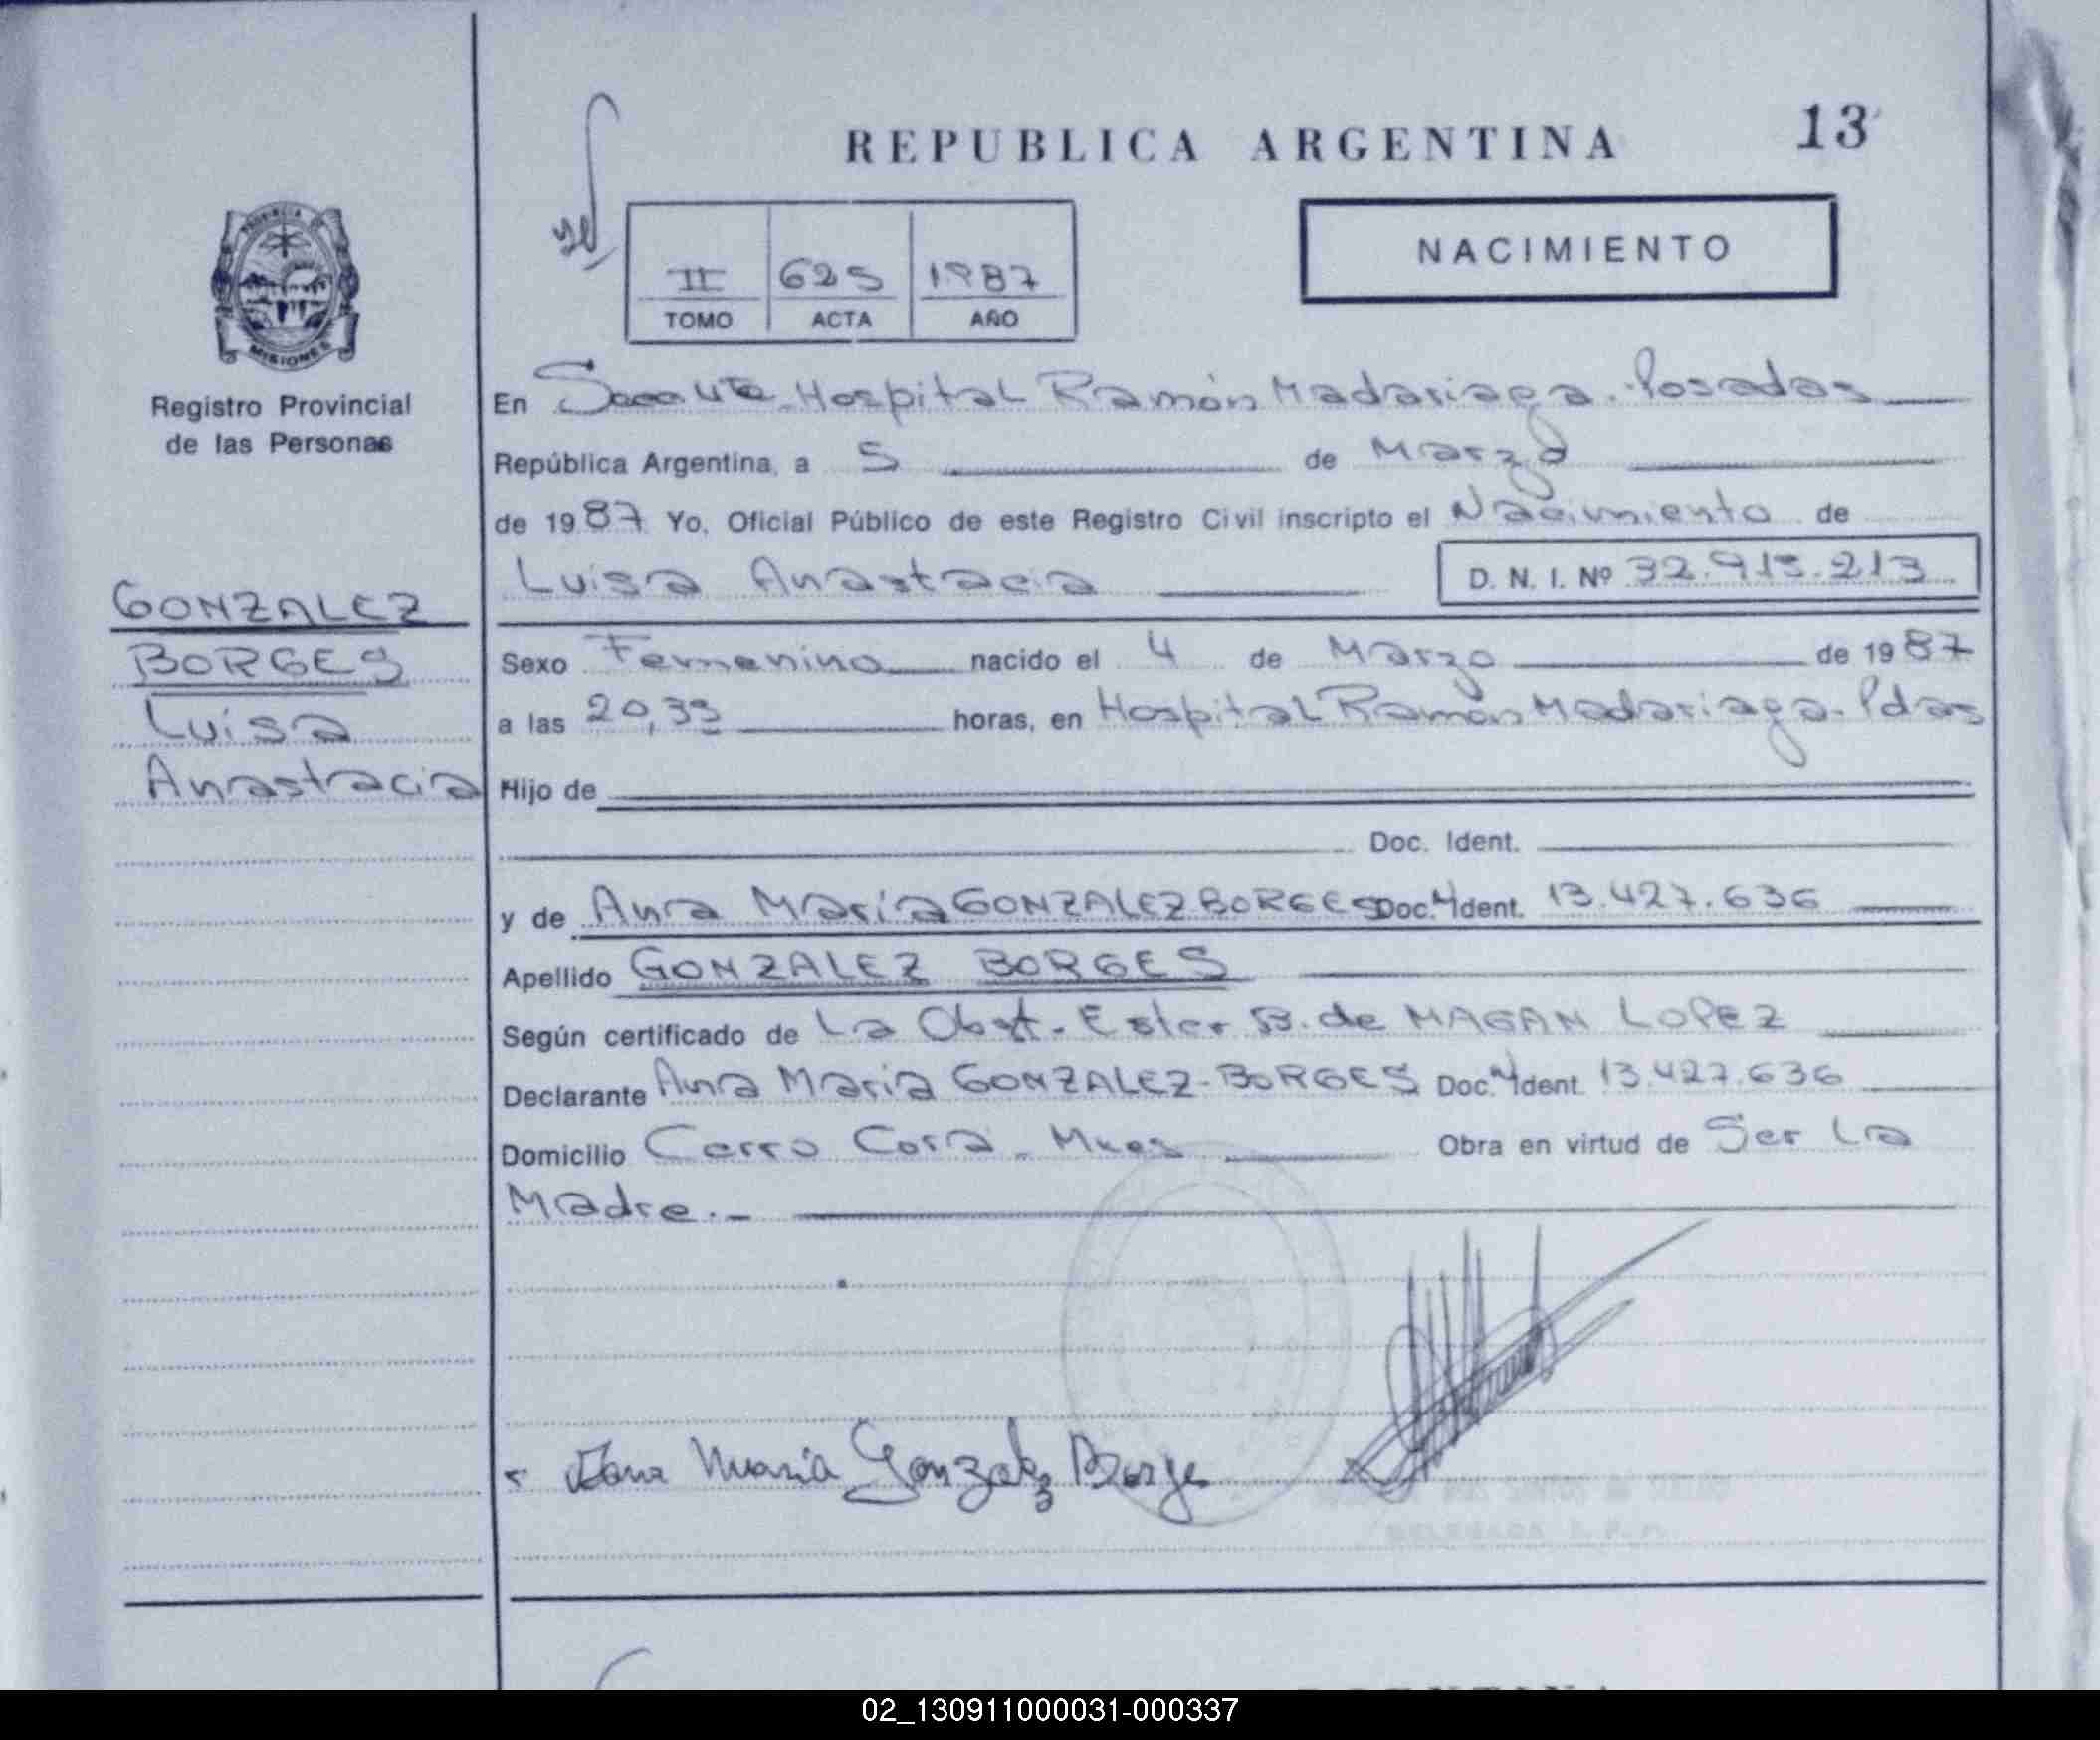 REPUBLICA ARGENTINA
13
II 625 1987
TOMO ACTA AÑO
NACIMIENTO
PROVINCIA DE
MISIONES
Registro Provincial
de las Personas
GONZALEZ
BORGES
Luisa
Anastacia
En Hospital Ramón Madariaga. Posadas
República Argentina, a 5 de Marzo
de 1987 Yo, Oficial Público de este Registro Civil inscripto el Nacimiento de
Luisa Anastacia D. N. I. Nº 32.915.213
Sexo Femenino nacido el 4 de Marzo de 1987
a las 20,35 horas, en Hospital Ramón Madariaga. Pdas
Hijo de
Doc. Ident.
y de Ana María GONZALEZ BORGES Doc. Ident. 13.427.636
Apellido GONZALEZ BORGES
Según certificado de La Obst. Ester B. de MAGAN LOPEZ
Declarante Ana María GONZALEZ-BORGES Doc. Ident. 13.427.636
Domicilio Cerro Corá. Mnes Obra en virtud de Ser La
Madre.-
Ana María Gonzalez Borge
02_130911000031-000337